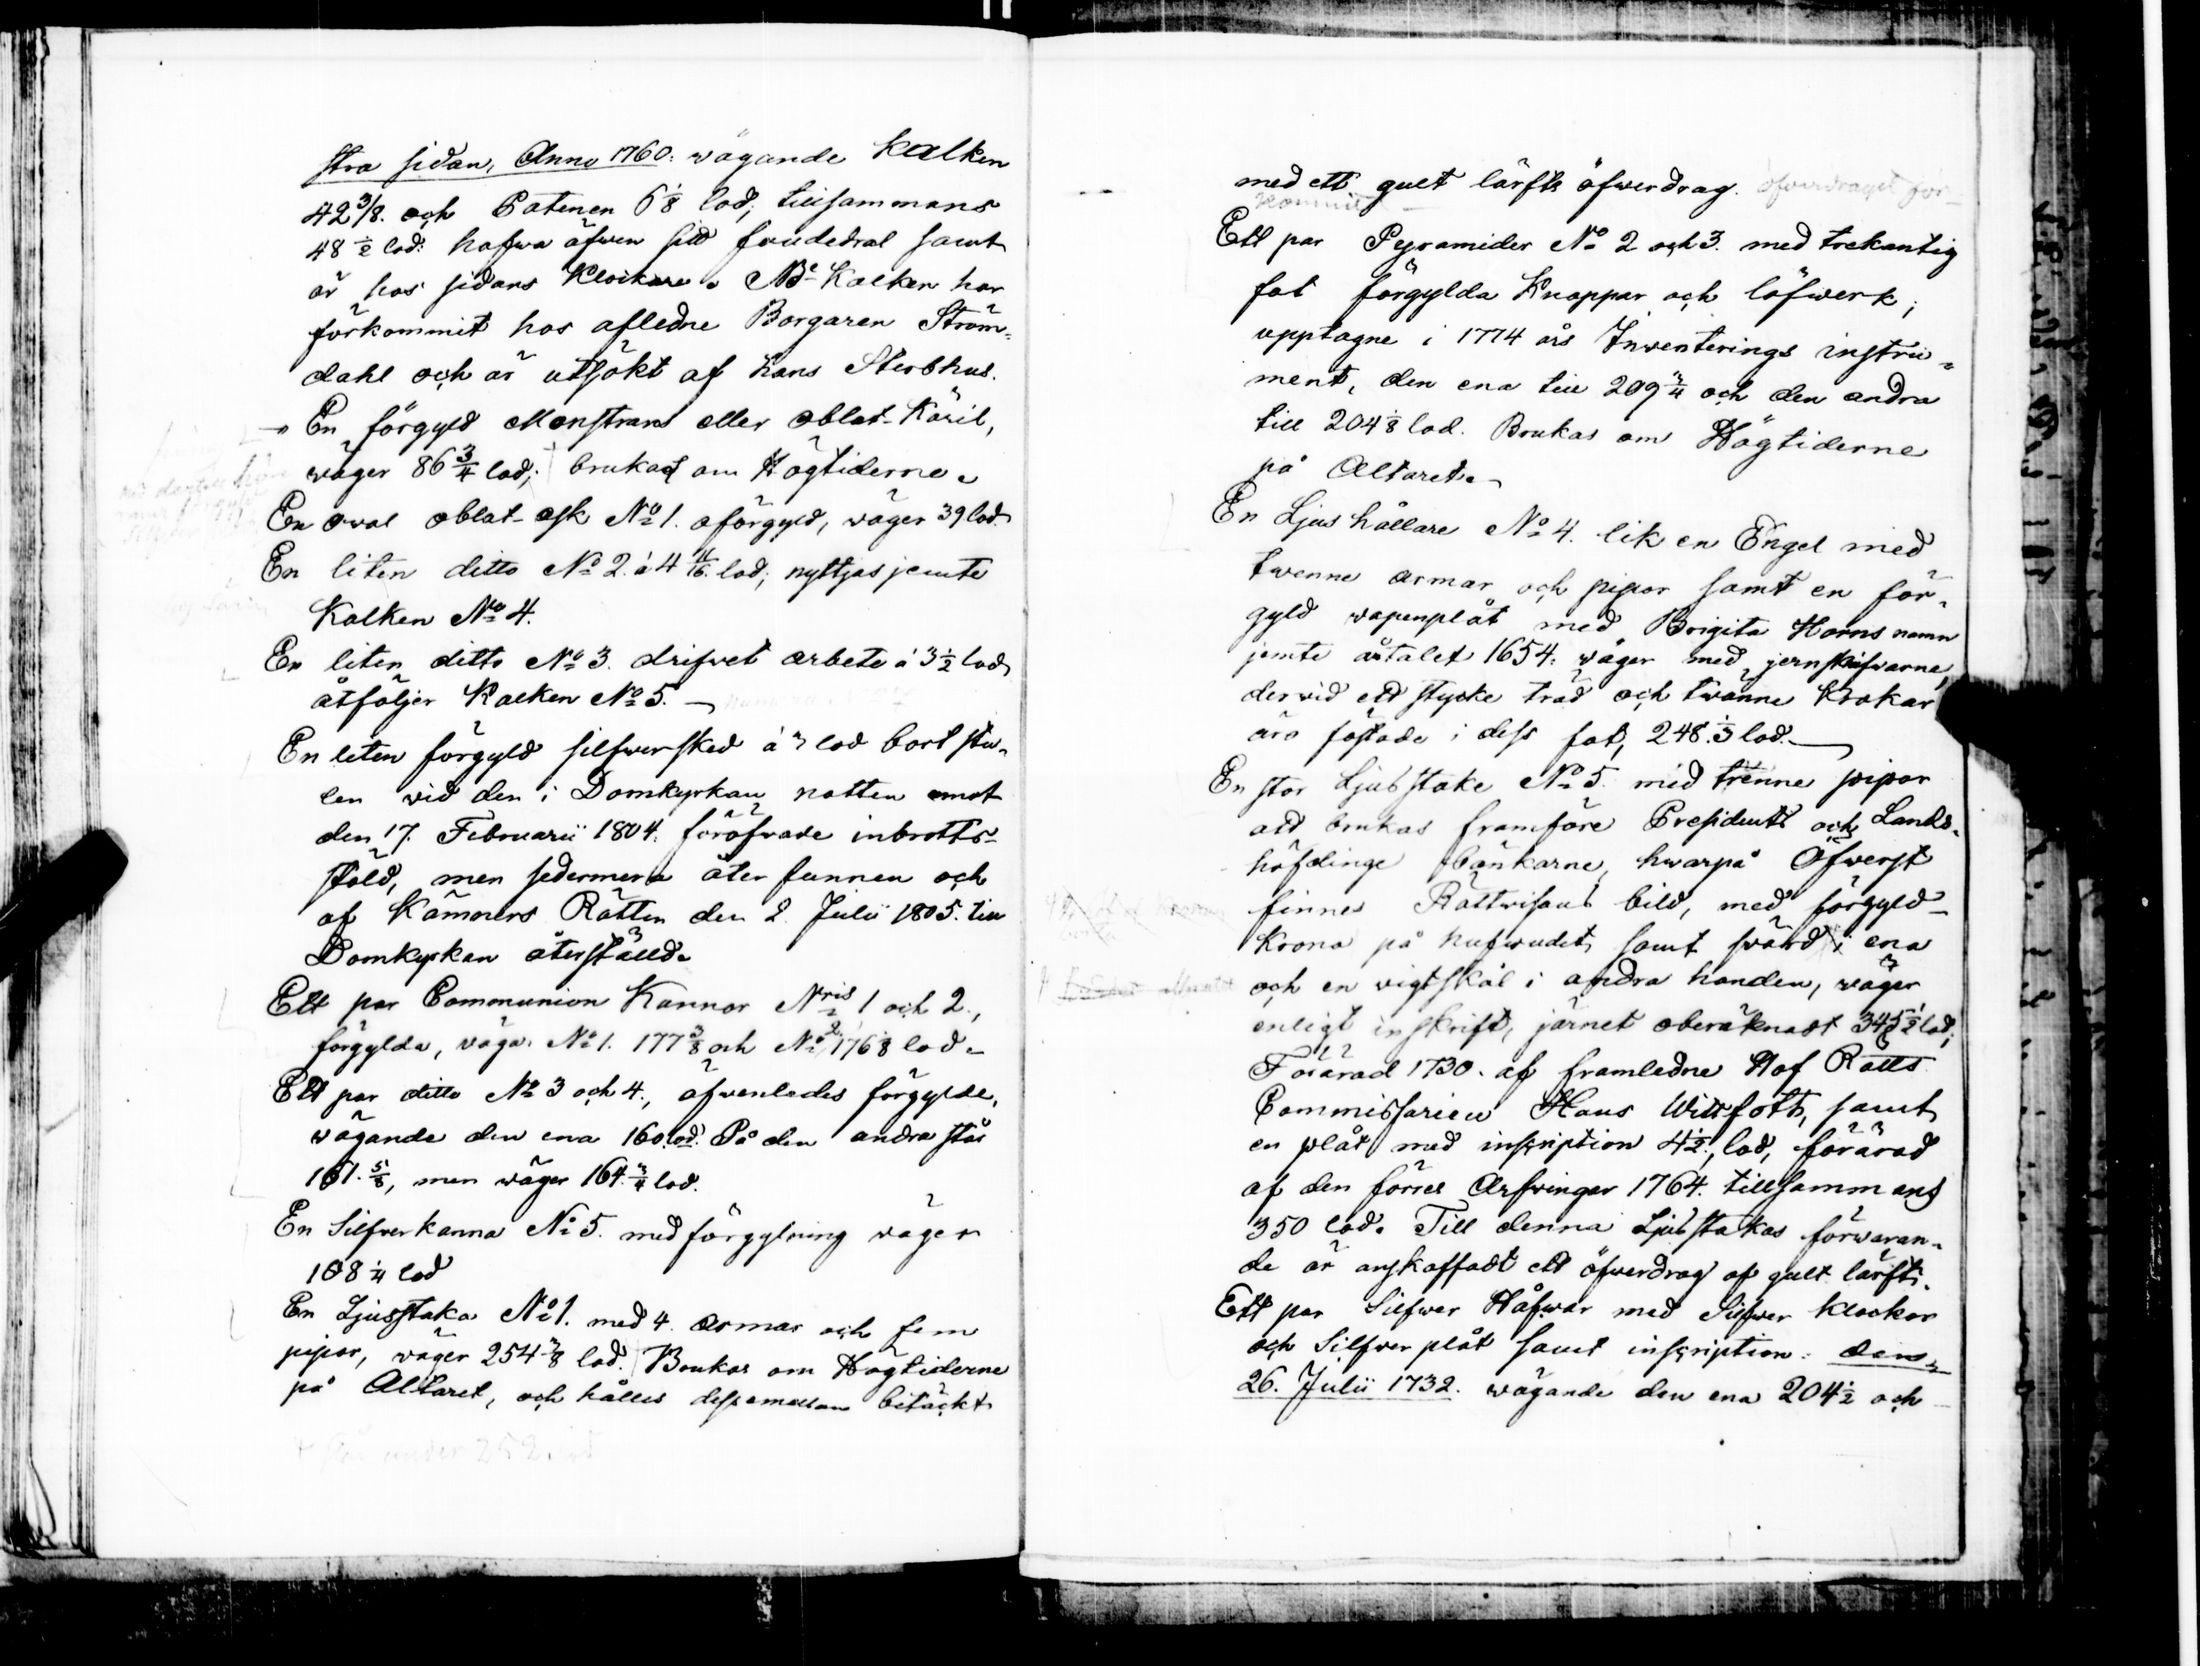 stra sidan, Anno 1760: wägande Kalken
42 3/8. och Patenen 6 1/8 lod; tillsammans
48 1/2 lod: hafwa äfwen sitt foudedral samt
är hos sidans Klockare. NB Kalken har
förkommit hos afledne Borgaren Ström-
dahl och är utsökt af hans Sterbhus.
En förgyld Monstrans eller oblat-Käril,
wäger 86 3/4 lod; brukas om Högtiderne.
En oval oblat-ask No 1. oförgyld, wäger 39 lod.
En liten ditto No 2. á 4 11/16. lod; nyttjas jemte
Kalken No 4.
En liten ditto No 3. drifvet arbete á 3 1/2 lod
åtföljer Kalken No 5.
En liten förgyld silfwersked á 3 lod bort stu-
len vid den i Domkyrkan natten emot
den 17. Februarii 1804. föröfvade inbrotts-
stöld, men sedermera åter funnen och
af Kämners Rätten den 2. Julii 1805. till
Domkyrkan återställd.
Ett par Communion Kannor Nris 1 och 2.,
förgylda, väga. No 1. 177 3/8 och No 2. 176 1/8 lod.
Ett par ditto No 3 och 4., äfvenledes förgylde,
wägande den ena 160. lod. På den andra står
161. 5/8, men wäger 164. 3/4 lod.
En Silfverkanna No 5. med förgylning väger
108 1/4 lod
En Ljusstaka No 1. med 4 armar och fem
pipor, väger 254 3/8 lod. Brukas om Högtiderne
på Altaret, och hålles dessemellan betäckt
+ står under 252. lod
med ett gult lärfts öfwerdrag. öfverdraget för-
kommit
Ett par Pyramider No 2 och 3. med trekantig
fot förgylda Knoppar och löfwerk;
upptagne i 1774 års Inventerings instru-
ment, den ena till 209 3/4 och den andra
till 204 1/8 lod. Brukas om Högtiderne
på Altaret.
En Ljushållare No 4. lik en Engel med
twenne armar och pipor samt en för-
gyld wapenplåt med Brigita Horns namn
jemte årtalet 1654: wäger med jernskifwarne,
dervid ett stycke träd och twänne Krokar
äro fästade i dess fot, 248. 1/3 lod.
En stor Ljusstake No 5. med trenne pipor
att brukas framföre Presidents och Lands-
höfdinge bänkarne, hwarpå Öfwerst
finnes Rättwisans bild, med förgyld
Krona på hufwudet samt swärd i ena
och en vigtskål i andra handen, wäger
enligt inskrift, järnet oberäknadt 345 1/2 lod;
Förärad 1730. af framledne Hof Rätts
Commissarien Hans Wittfoth, samt
en plåt med inscription 4 1/2, lod, förärad
af den förres Arfwingar 1764. tillsammans
350 lod. Till denna Ljusstakas förwaran-
de är anskaffadt ett öfwerdrag af gult lärft.
Ett par Silfwer Håfwar med Silfwer Klockor
och Silfverplåt samt inscription: den
26. Julii 1732. wägande den ena 204 1/2 och